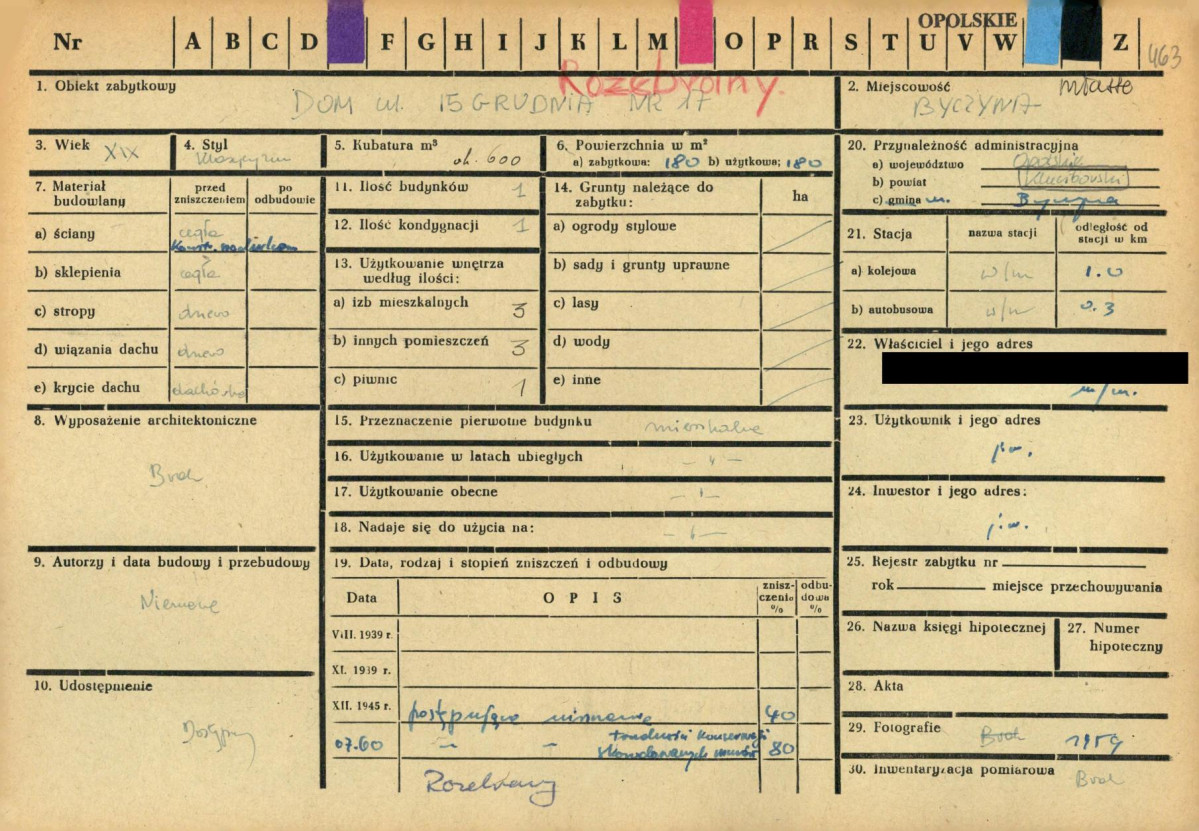 OPOLSKIE
Nr A B C D F G H I J K L M O P R S T U V W Z
463
Rozebrany.
1. Obiekt zabytkowy
DOM ul. 15 GRUDNIA NR 17
2. Miejscowość miasto
BYCZYNA
3. Wiek XIX
4. Styl
5. Kubatura m³ ok. 600
6. Powierzchnia w m²
a) zabytkowa: 180 b) użytkowa: 180
7. Materiał budowlany
przed zniszczeniem
po odbudowie
a) ściany cegła
b) sklepienia cegła
c) stropy drewno
d) wiązania dachu drewno
e) krycie dachu dachówka
8. Wyposażenie architektoniczne
Brak
9. Autorzy i data budowy i przebudowy
Nieznane
10. Udostępnienie
Dostępny
11. Ilość budynków 1
12. Ilość kondygnacji 1
13. Użytkowanie wnętrza według ilości:
a) izb mieszkalnych 3
b) innych pomieszczeń 3
c) piwnic 1
14. Grunty należące do zabytku:
ha
a) ogrody stylowe
b) sady i grunty uprawne
c) lasy
d) wody
e) inne
15. Przeznaczenie pierwotne budynku mieszkalne
16. Użytkowanie w latach ubiegłych — " —
17. Użytkowanie obecne — " —
18. Nadaje się do użycia na: — " —
19. Data, rodzaj i stopień zniszczeń i odbudowy
Data OPIS zniszczenie % odbudowa %
VIII. 1939 r.
XI. 1939 r.
XII. 1945 r. postępujące niszczenie 40
07.60 — " — trudności konserwacji
skorodowanych murów 80
Rozebrany
20. Przynależność administracyjna
a) województwo Opolskie
b) powiat Kluczborski
c) gmina m. Byczyna
21. Stacja
nazwa stacji
odległość od stacji w km
a) kolejowa w/m 1.0
b) autobusowa w/m 0.3
22. Właściciel i jego adres
w/m.
23. Użytkownik i jego adres
j.w.
24. Inwestor i jego adres:
j.w.
25. Rejestr zabytku nr
rok miejsce przechowywania
26. Nazwa księgi hipotecznej
27. Numer hipoteczny
28. Akta
29. Fotografie Brak 1959
30. Inwentaryzacja pomiarowa Brak